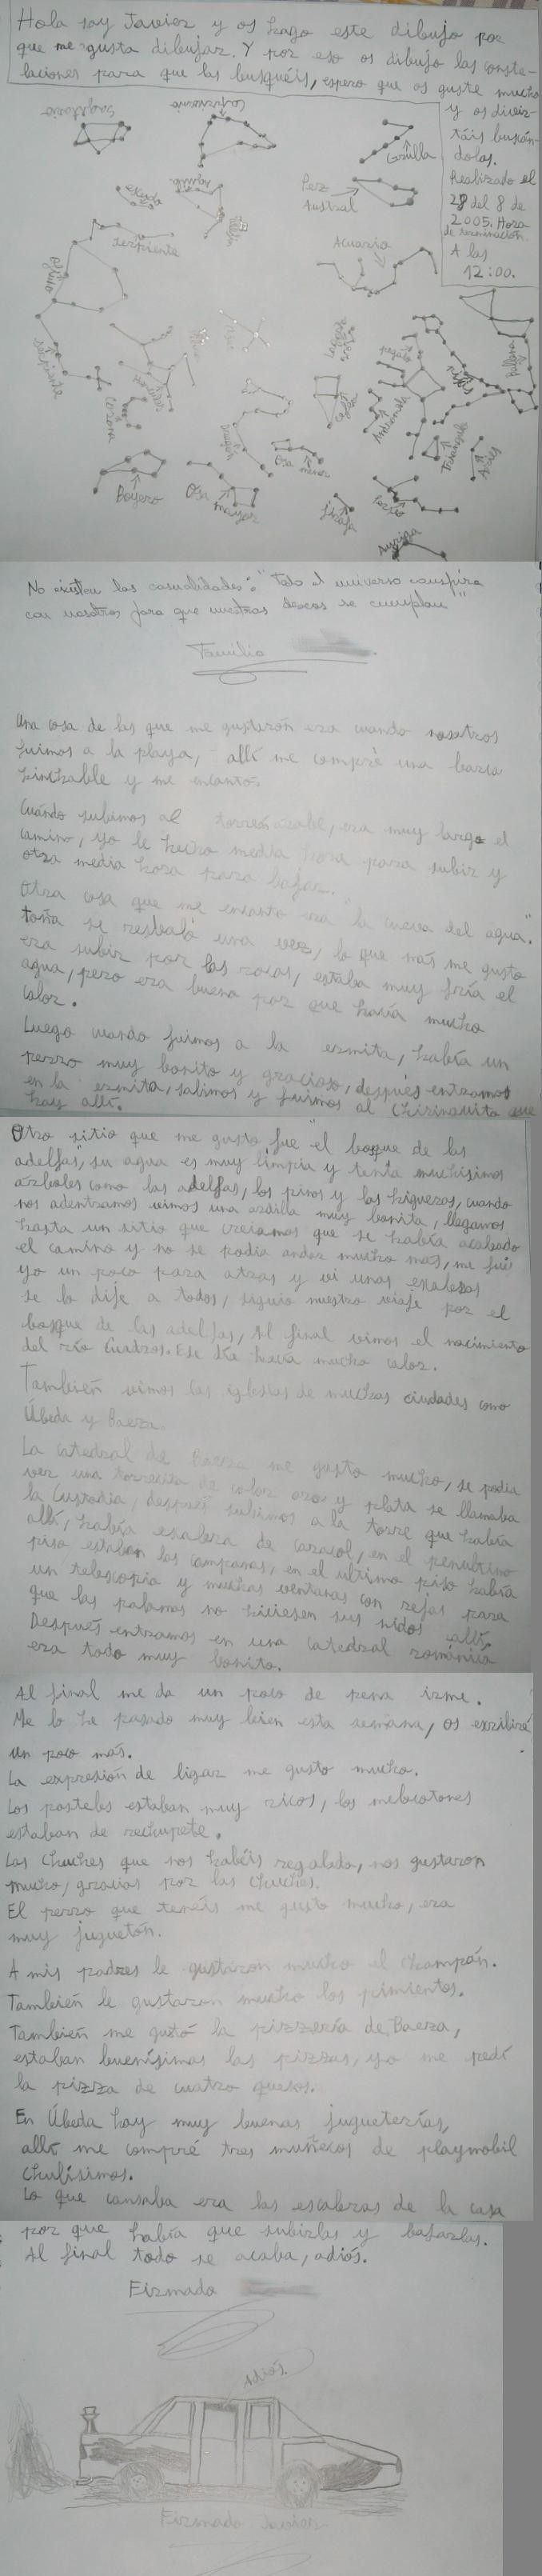 Hola soy Javier y os hago este dibujo por
que me gusta dibujar. Y por eso os dibujo las conste-
laciones para que las busquéis, espero que os guste mucho
y os divir-
táis buscán-
dolas.
Realizado el
28 del 8 de
2005. Hora
de terminación.
A las
12:00.
Sagitario
Capricornio
Grulla
Pez
Austral
Aguila
Acuario
Serpiente
Ofiuco
Serpiente
Corona
Hercules
Lira
Cisne
Dragón
Osa menor
Boyero
Osa
mayor
Jirafa
Pegaso
Andromeda
Piscis
Ballena
Triangulo
Aries
Perseo
Auriga
No existen las casualidades: "Todo el universo conspira
con nosotros para que nuestros deseos se cumplan"
Familia
Una cosa de las que me gustarón era cuando nosotros
fuimos a la playa, allí me compré una barca
hinchable y me encanto.
Cuándo subimos al torreón arabe, era muy largo el
camino, yo le hecho media hora para subir y
otra media hora para bajar.
Otra cosa que me encanto era "la cueva del agua."
tonia se resbaló una vez, lo que más me gusto
era subir por las rocas, estaba muy fría el
agua, pero era buena por que hacía mucho
calor.
Luego cuando fuimos a la ermita, había un
perro muy bonito y gracioso, después entramos
en la ermita, salimos y fuimos al chirinquito que
hay allí.
Otro sitio que me gusto fue "el bosque de las
adelfas", su agua es muy limpia y tenía muchísimos
árboles como las adelfas, los pinos y las higueras, cuando
nos adentramos vimos una ardilla muy bonita, llegamos
hasta un sitio que creíamos que se había acabado
el camino y no se podía andar mucho más, me fui
yo un poco para atras y vi unas escaleras
se lo dije a todos, siguio nuestro viaje por el
bosque de las adelfas, al final vimos el nacimiento
del río Cuadros. Ese día hacía mucho calor.
También vimos las iglesias de muchas ciudades como
Úbeda y Baeza.
La catedral de Baeza me gusto mucho, se podía
ver una torrecita de color oro y plata se llamaba
la Custodia, después subimos a la torre que había
allí, había escalera de caracol, en el penultimo
piso estaban las campanas, en el ultimo piso había
un telescopio y muchas ventanas con rejas para
que las palomas no hiciesen sus nidos allí.
Después entramos en una catedral románica
era todo muy bonito.
Al final me da un poco de pena irme.
Me lo he pasado muy bien esta semana, os escribiré
un poco más.
La expresión de ligar me gusto mucho.
Los pasteles estaban muy ricos, los melocotones
estaban de rechupete.
Las chuches que nos habéis regalado, nos gustaron
mucho, gracias por las chuches.
El perro que tenéis me gusto mucho, era
muy juguetón.
A mis padres le gustaron mucho el champán.
También le gustaron mucho los pimientos.
También me gustó la pizzería de Baeza,
estaban buenísimas las pizzas, yo me pedí
la pizza de cuatro quesos.
En Úbeda hay muy buenas jugueterías,
allí me compré tres muñecos de playmobil
chulísimos.
Lo que cansaba era las escaleras de la casa
por que había que subirlas y bajarlas.
Al final todo se acaba, adiós.
Firmado
Adiós.
Firmado Javier